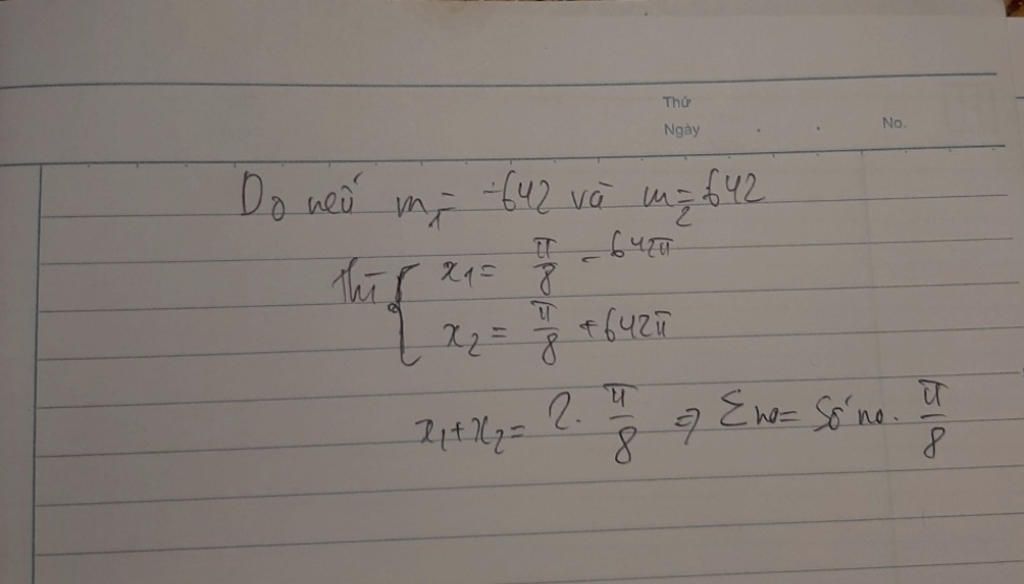 Thứ
Ngày . . No.
Do nếu m₁ = -642 và m₂ = 642
thì { x₁ = π/8 - 642π
x₂ = π/8 + 642π
x₁ + x₂ = 2. π/8 ⇒ Σ no = Số no. π/8